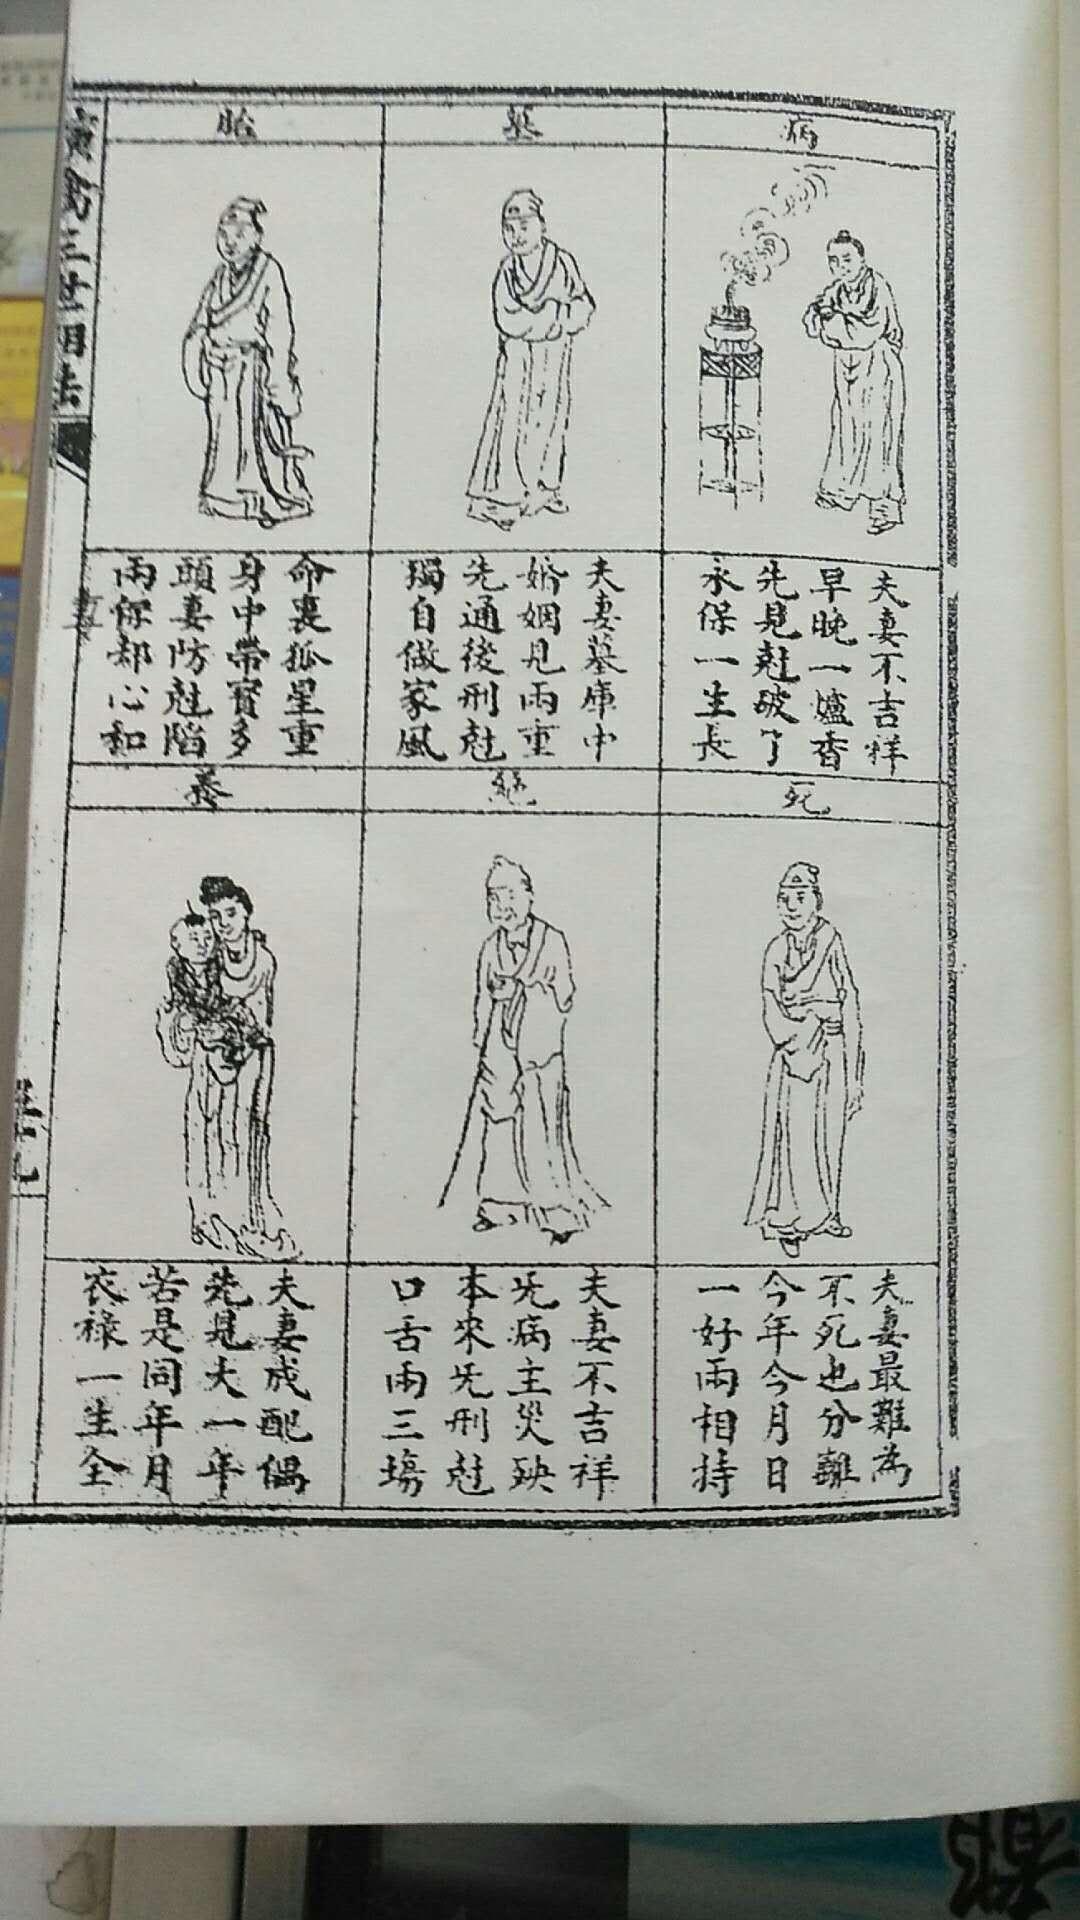 病
夫妻不吉祥
早晚一爐香
先見尅破了
永保一生長
墓
夫妻墓庫中
婚姻見兩重
先通後刑尅
獨自做家風
胎
命裏孤星重
身中帶寶多
頭妻防尅陷
兩保却心和
死
夫妻最難為
不死也分離
今年今月日
一好兩相持
絕
夫妻不吉祥
旡病主災殃
本來旡刑尅
口舌兩三場
養
夫妻成配偶
先見大一年
若是同年月
衣祿一生全
三世相法